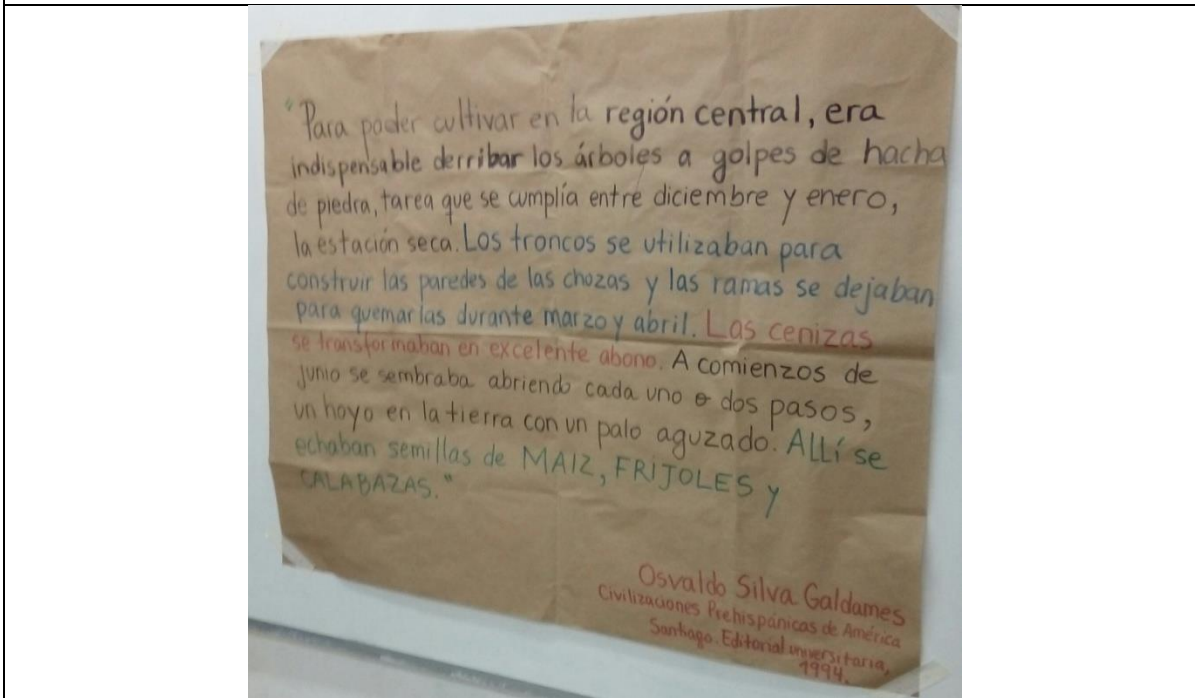 "Para poder cultivar en la región central, era
indispensable derribar los árboles a golpes de hacha
de piedra, tarea que se cumplía entre diciembre y enero,
la estación seca. Los troncos se utilizaban para
construir las paredes de las chozas y las ramas se dejaban
para quemarlas durante marzo y abril. Las cenizas
se transformaban en excelente abono. A comienzos de
junio se sembraba abriendo cada uno o dos pasos,
un hoyo en la tierra con un palo aguzado. ALLí se
echaban semillas de MAIZ, FRIJOLES y
CALABAZAS."
Osvaldo Silva Galdames
Civilizaciones Prehispánicas de América
Santiago. Editorial universitaria,
1994.